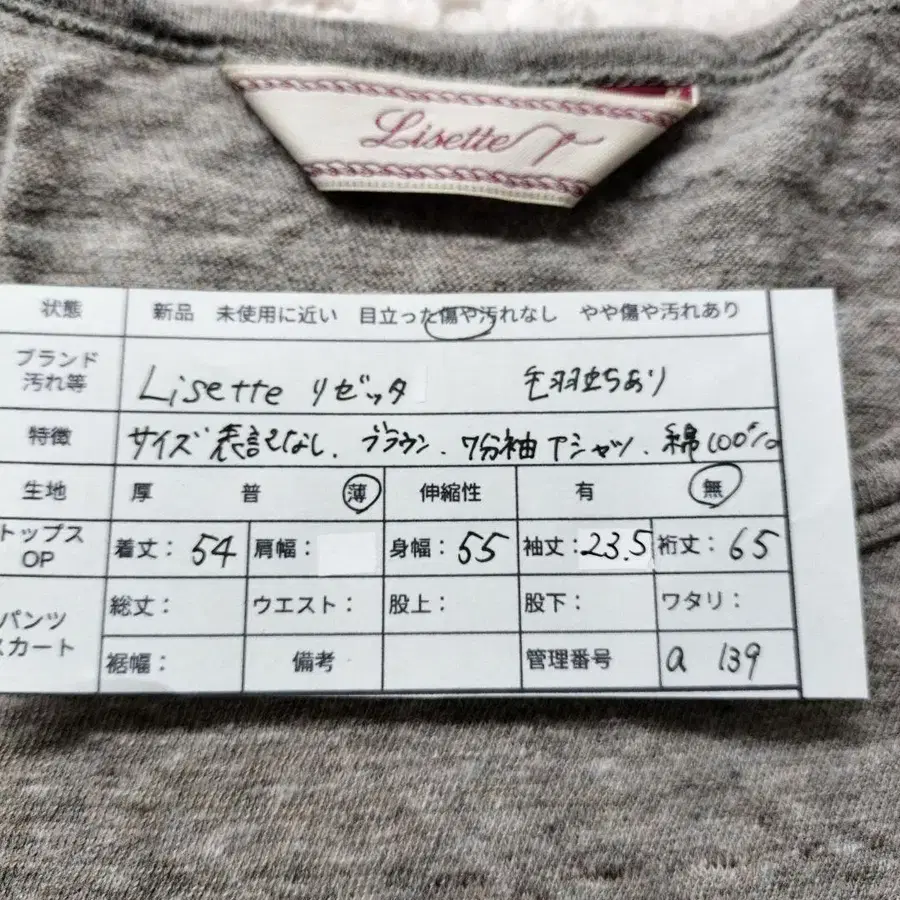 Lisette
状態 新品 未使用に近い 目立った傷や汚れなし やや傷や汚れあり
ブランド
汚れ等 Lisette リゼッタ 毛羽立ちあり
特徴 サイズ表記なし、ブラウン、7分袖Tシャツ、綿100%
生地 厚 普 薄 伸縮性 有 無
トップス
OP 着丈: 54 肩幅: 身幅: 55 袖丈: 23.5 裄丈: 65
パンツ
スカート 総丈: ウエスト: 股上: 股下: ワタリ:
裾幅: 備考 管理番号 a 139